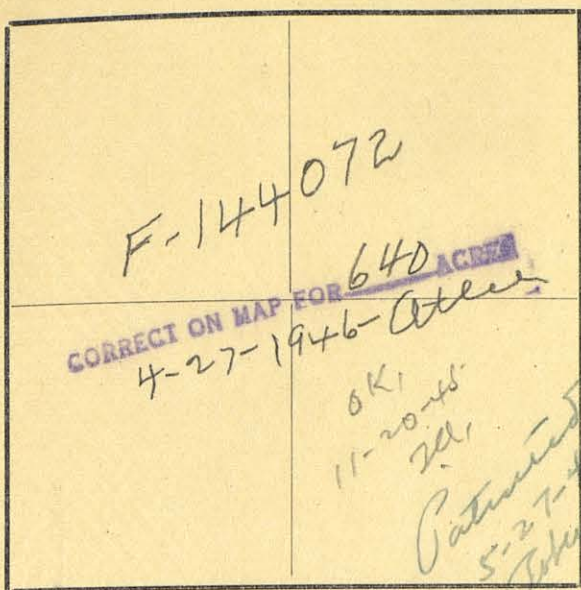 F-144072
CORRECT ON MAP FOR 640 ACRES
4-27-1946-
OK,
11-20-45
Patented
5-27-4